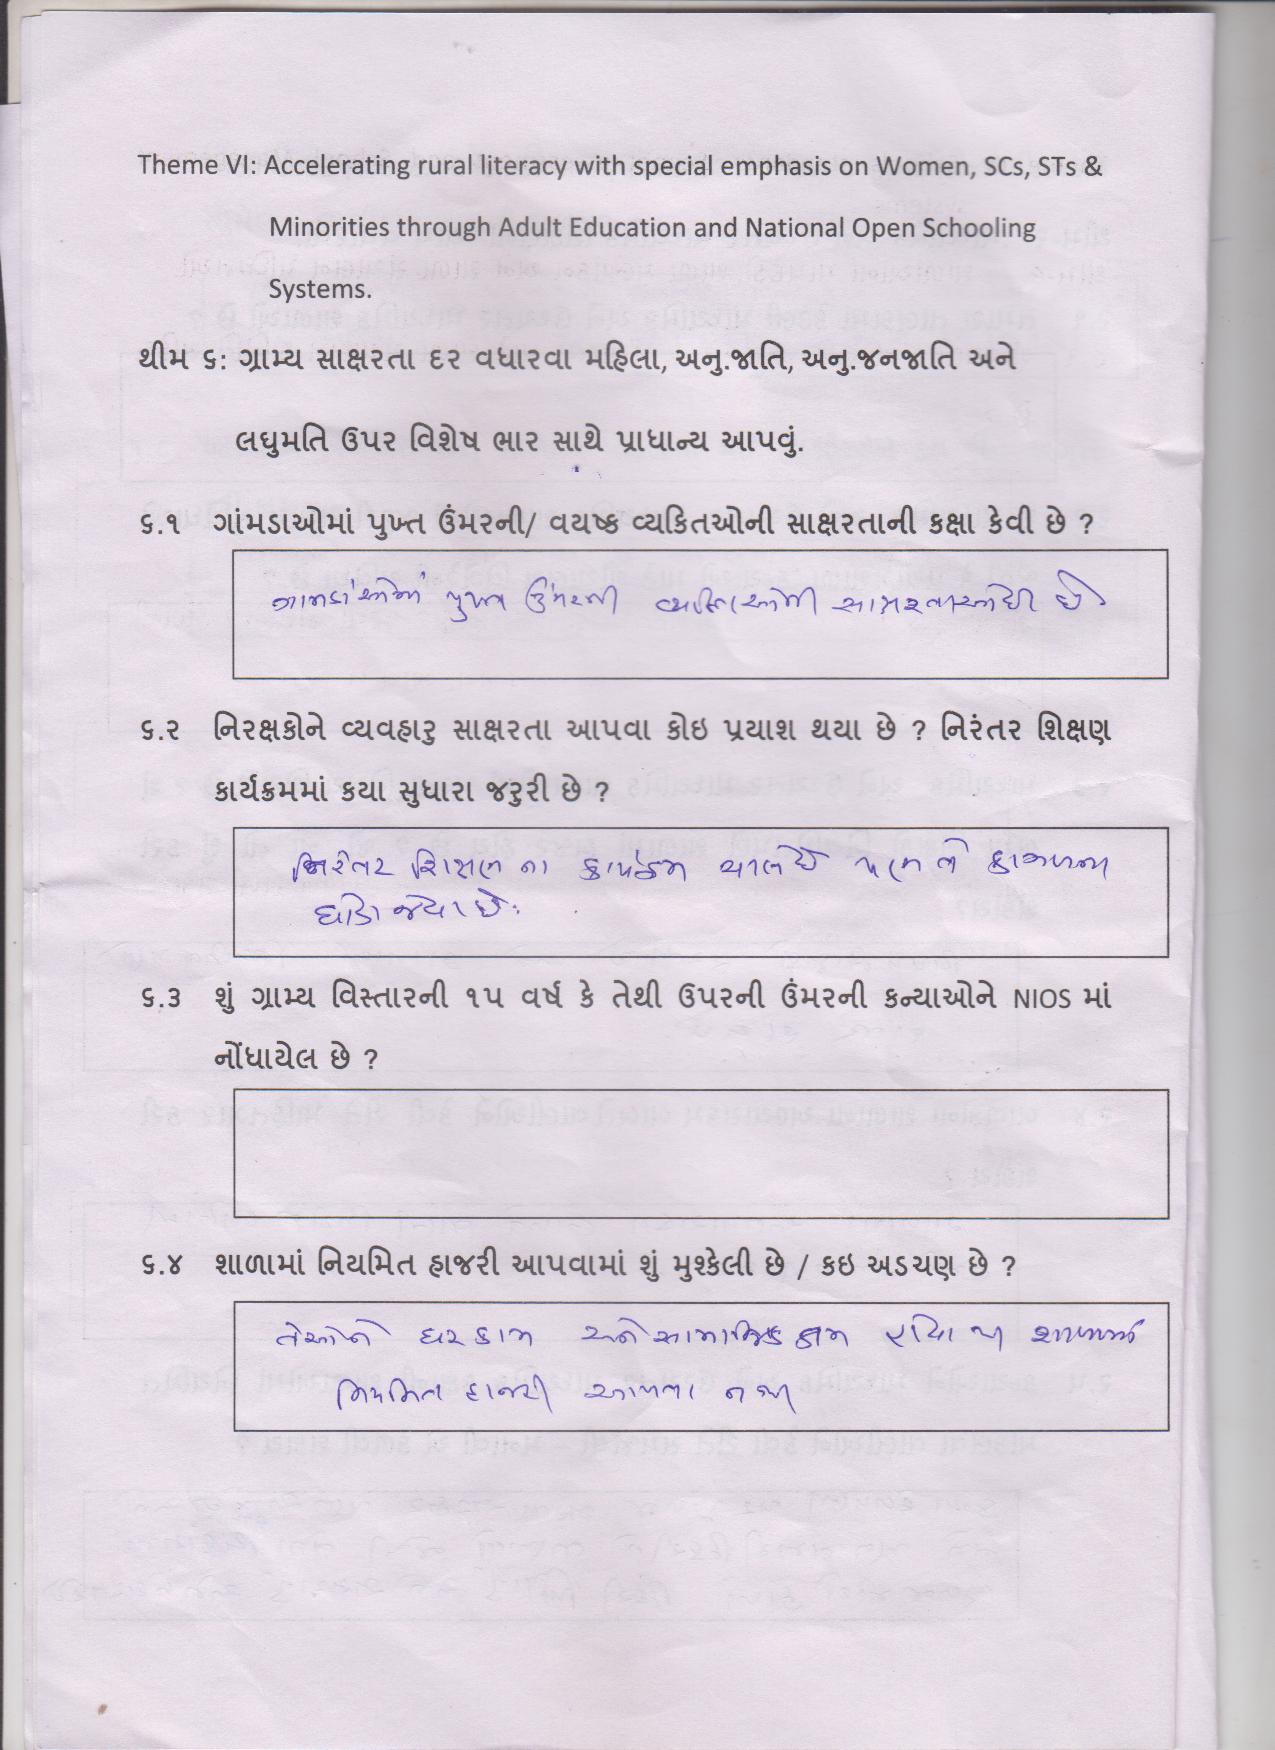 Theme VI: Accelerating rural literacy with special emphasis on Women, SCs, STs &
Minorities through Adult Education and National Open Schooling
Systems.
થીમ ૬: ગ્રામ્ય સાક્ષરતા દર વધારવા મહિલા, અનુ.જાતિ, અનુ.જનજાતિ અને
લઘુમતિ ઉપર વિશેષ ભાર સાથે પ્રાધાન્ય આપવું.
૬.૧ ગાંમડાઓમાં પુખ્ત ઉંમરની/ વયષ્ક વ્યકિતઓની સાક્ષરતાની કક્ષા કેવી છે ?
ગામડાંઓમાં પુખ્ત ઉંમરની વ્યક્તિઓની સાક્ષરતા ઓછી છે
૬.૨ નિરક્ષકોને વ્યવહારુ સાક્ષરતા આપવા કોઇ પ્રયાશ થયા છે ? નિરંતર શિક્ષણ
કાર્યક્રમમાં કયા સુધારા જરુરી છે ?
નિરંતર શિક્ષણ ના કાર્યક્રમ ચાલે છે પણ તે કાગળના
ઘોડા જેવા છે.
૬.૩ શું ગ્રામ્ય વિસ્તારની ૧૫ વર્ષ કે તેથી ઉપરની ઉંમરની કન્યાઓને NIOS માં
નોંધાયેલ છે ?
૬.૪ શાળામાં નિયમિત હાજરી આપવામાં શું મુશ્કેલી છે / કઇ અડચણ છે ?
તેઓને ઘરકામ અને સામાજિક કામ શાળામાં
નિયમિત હાજરી આપતા નથી